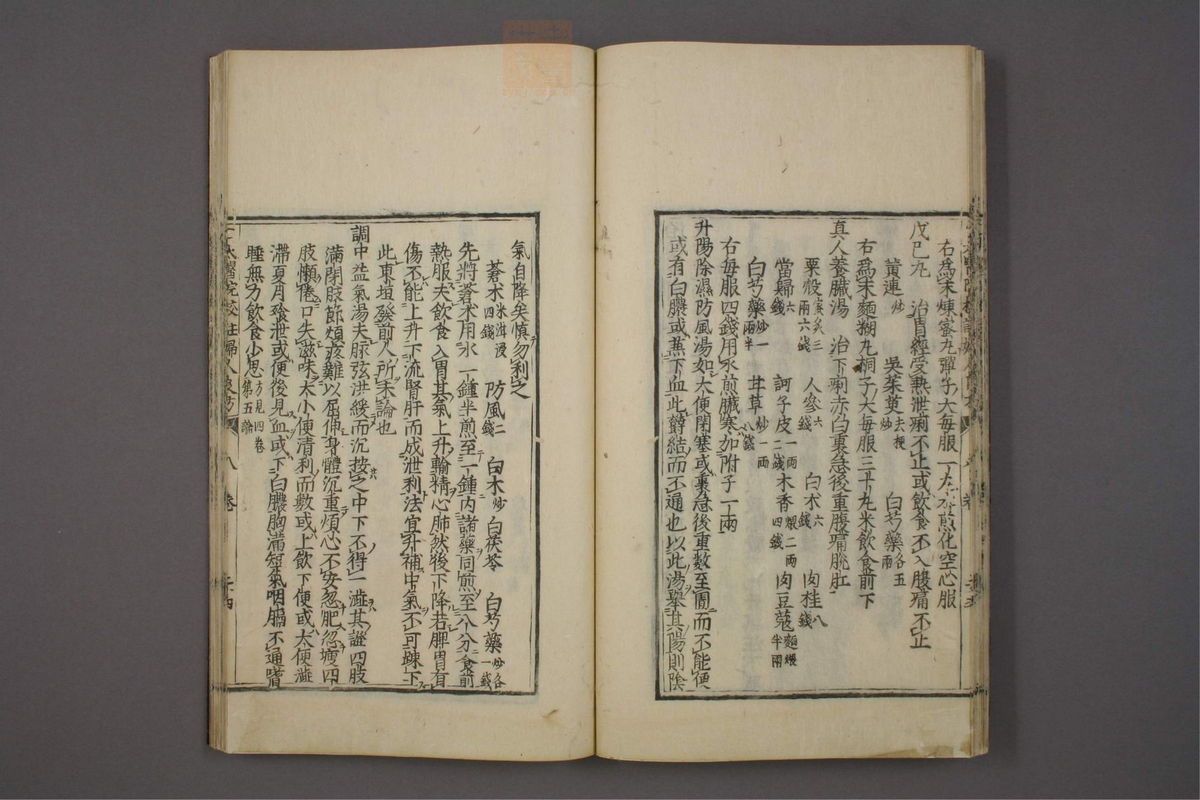 右爲末煉蜜丸彈子大毎服一丸水煎化空心服
戊己丸　治胃經受熱泄痢不止或飲食不入腹痛不止
黄連炒　吳茱萸去梗炒　白芍藥各五兩
右爲末麵糊丸桐子大毎服三十丸米飲食前下
真人養臓湯　治下痢赤白裏急後重腹痛脫肛
粟殼蜜炙三兩六錢　人參六錢　白朮六錢　肉桂八錢
當歸六錢　訶子皮一兩二錢　木香煨二兩四錢　肉豆蔻麵煨半兩
白芍藥炒一兩半　甘草炒一兩八錢
右毎服四錢用水煎臓寒加附子一兩
升陽除濕防風湯如大便閉塞或裏急後重数至圊而不能便
或有白膿或血慎勿利之利之則必致病重反欝結而不通也以此湯擧其陽則陰
氣自降矣慎勿利之
蒼朮米泔浸四錢　防風二錢　白朮炒　白茯苓　白芍藥炒各一錢
先將蒼朮用水一鍾半煎至一鍾内諸藥同煎至八分食前
熱服夫飲食入胃其氣上升輸精心肺然後下降若脾胃有
傷不能上升下流腎肝而成泄利法宜升補中氣不可踈下
此東垣發前人所未論也
調中益氣湯夫脉弦洪緩而沉按之中下不得一澁其證四肢
滿閉肢節煩疼難以屈伸身體沉重煩心不安忽肥忽瘦四
肢懶倦口失滋味大小便清利而數或上飲下便或大便澁
滯夏月飱泄或便後見血或下白膿胸滿短氣咽膈不通嗜
睡無力飲食少思方見四卷第五論
卷
二十四